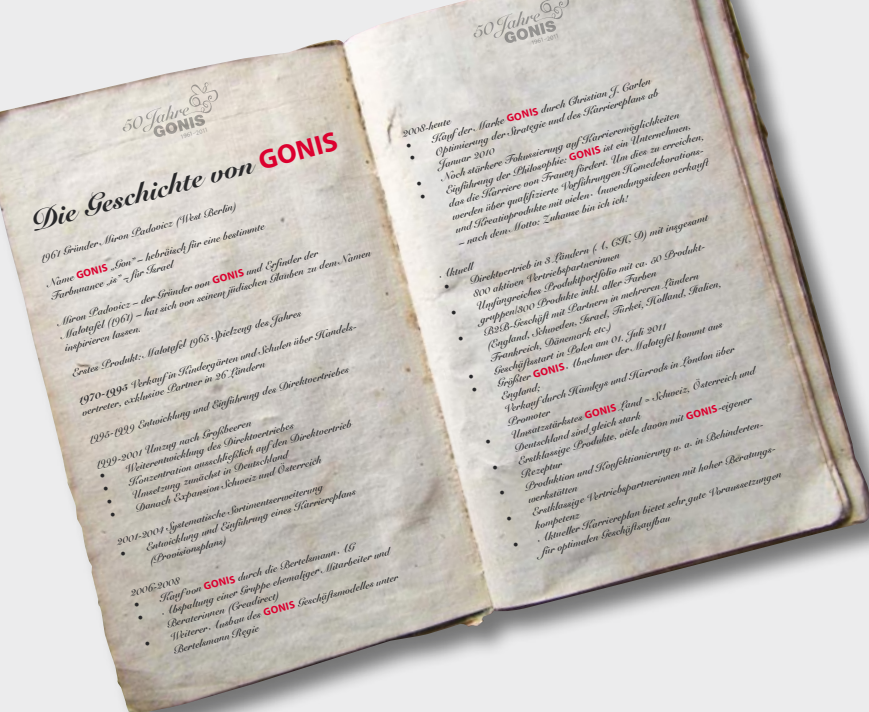 50 Jahre
GONIS
1961-2011
Die Geschichte von GONIS
1961 Gründer Miron Padovicz (West Berlin)
Name GONIS „Gon“ – hebräisch für eine bestimmte
Farbnuance „is“ – für Israel
Miron Padovicz – der Gründer von GONIS und Erfinder der
Malotafel (1961) – hat sich von seinem jüdischen Glauben zu dem Namen
inspirieren lassen.
Erstes Produkt: Malotafel 1963 Spielzeug des Jahres
1970-1995 Verkauf in Kindergärten und Schulen über Handels-
vertreter, exklusive Partner in 26 Ländern
1995-1999 Entwicklung und Einführung des Direktvertriebes
1999-2001 Umzug nach Großbeeren
• Weiterentwicklung des Direktvertriebes
• Konzentration ausschließlich auf den Direktvertrieb
• Umsetzung zunächst in Deutschland
• Danach Expansion Schweiz und Österreich
2001-2004 Systematische Sortimentserweiterung
• Entwicklung und Einführung eines Karriereplans
(Provisionsplans)
2006-2008
• Kauf von GONIS durch die Bertelsmann AG
• Abspaltung einer Gruppe ehemaliger Mitarbeiter und
Beraterinnen (Creadirect)
• Weiterer Ausbau des GONIS Geschäftsmodelles unter
Bertelsmann Regie
50 Jahre
GONIS
1961-2011
2008-heute
• Kauf der Marke GONIS durch Christian J. Garlen
• Optimierung der Strategie und des Karriereplans ab
Januar 2010
• Noch stärkere Fokussierung auf Karrieremöglichkeiten
• Einführung der Philosophie: GONIS ist ein Unternehmen,
das die Karriere von Frauen fördert. Um dies zu erreichen,
werden über qualifizierte Vorführungen Homedekorations-
und Kreativprodukte mit vielen Anwendungsideen verkauft
– nach dem Motto: Zuhause bin ich ich!
Aktuell
• Direktvertrieb in 3 Ländern (A, CH, D) mit insgesamt
800 aktiven Vertriebspartnerinnen
• Umfangreiches Produktportfolio mit ca. 50 Produkt-
gruppen/300 Produkte inkl. aller Farben
• B2B-Geschäft mit Partnern in mehreren Ländern
(England, Schweden, Israel, Türkei, Holland, Italien,
Frankreich, Dänemark etc.)
• Geschäftsstart in Polen am 01. Juli 2011
• Größter GONIS. Abnehmer der Malotafel kommt aus
England;
Verkauf durch Hamleys und Harrods in London über
Promoter
• Umsatzstärkstes GONIS Land = Schweiz, Österreich und
Deutschland sind gleich stark
• Erstklassige Produkte, viele davon mit GONIS-eigener
Rezeptur
• Produktion und Konfektionierung u. a. in Behinderten-
werkstätten
• Erstklassige Vertriebspartnerinnen mit hoher Beratungs-
kompetenz
• Aktueller Karriereplan bietet sehr gute Voraussetzungen
für optimalen Geschäftsaufbau